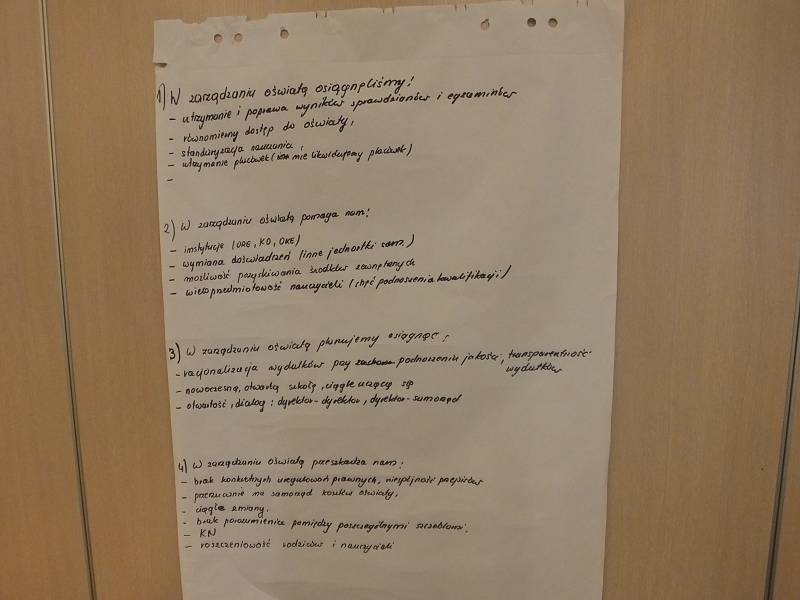 1) W zarządzaniu oświatą osiągnęliśmy!
- utrzymanie i poprawa wyników sprawdzianów i egzaminów
- równomierny dostęp do oświaty,
- standaryzacja nauczania,
- utrzymanie placówek (nie likwidujemy placówek)
-
2) W zarządzaniu oświatą pomaga nam!
- instytucje (ORE, KO, OKE)
- wymiana doświadczeń (inne jednostki sam.)
- możliwość pozyskiwania środków zewnętrznych
- wieloprzedmiotowość nauczycieli (chęć podnoszenia kwalifikacji)
3) W zarządzaniu oświatą planujemy osiągnąć:
- racjonalizacja wydatków przy podnoszeniu jakości, transparentność
wydatków
- nowoczesną, otwartą szkołę, ciągle uczącą się
- otwartość, dialog: dyrektor-dyrektor, dyrektor-samorząd
4) W zarządzaniu oświatą przeszkadza nam:
- brak konkretnych uregulowań prawnych, niespójność przepisów
- przerzucanie na samorząd kosztów oświaty,
- ciągłe zmiany,
- brak porozumienia pomiędzy poszczególnymi szczeblami,
- KN
- roszczeniowość rodziców i nauczycieli